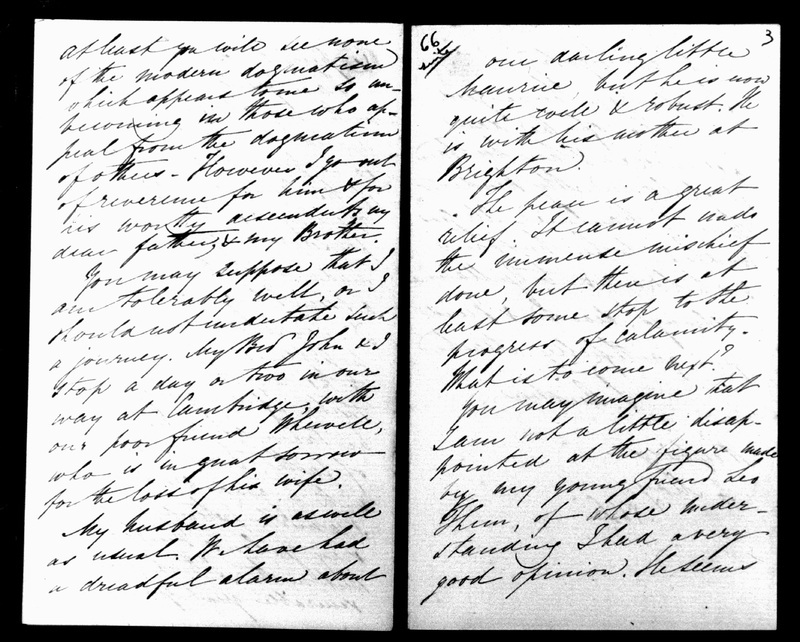 at least you will see none
of the modern dogmatism
which appears to me so un-
becoming in those who ap-
peal from the dogmatism
of others - However I go out
of reverence for him & for
his worthy descendents my
dear father, & my Brother.
You may suppose that I
am tolerably well, or I
should not undertake such
a journey. My Bro John & I
stop a day or two in our
way at Cambridge, with
our poor friend Whewell,
who is in great sorrow
for the loss of his wife.
My husband is as well
as usual. We have had
a dreadful alarm about
66
3
our darling little
Maurice, but he is now
quite well & robust. He
is with his mother at
Brighton.
The peace is a great
relief. It cannot undo
the immense mischief
done, but there is at
least some stop to the
progress of calamity.
What is to come next?
You may imagine that
I am not a little disap-
pointed at the figure made
by my young friend Leo
Thun, of whose under-
standing I had a very
good opinion. He seems